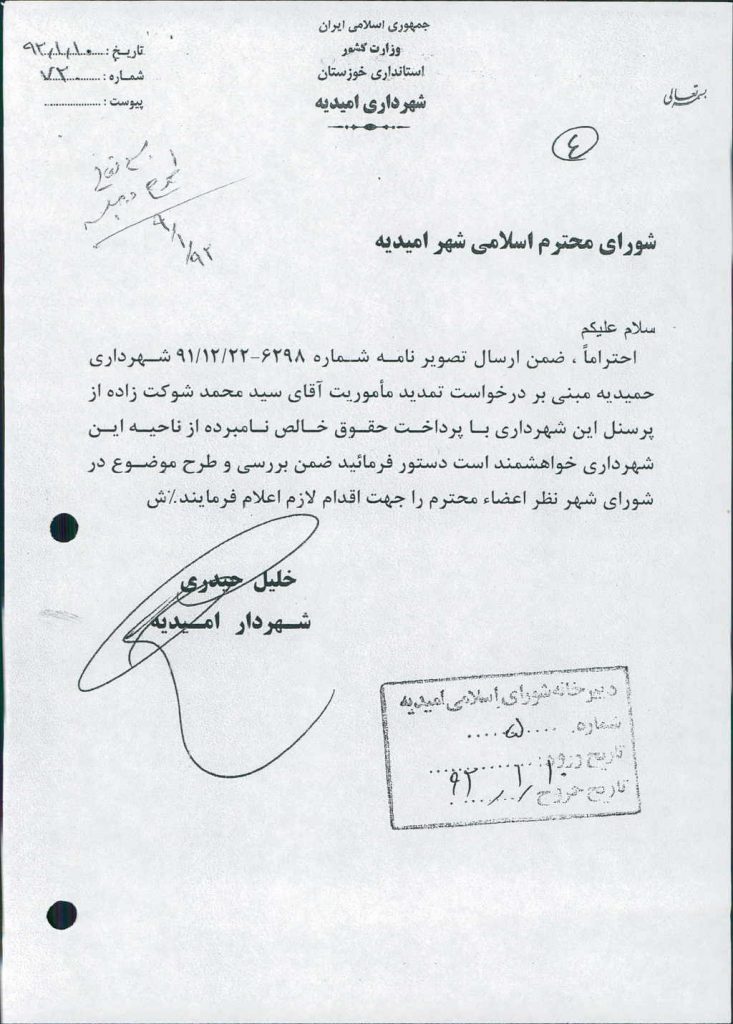 جمهوری اسلامی ایران
وزارت کشور
استانداری خوزستان
شهرداری امیدیه
تاریخ : ۹۲/۱/۱۰
شماره : ۷۲
پیوست :
بسمه تعالی
۴
۹۲/۱/
شورای محترم اسلامی شهر امیدیه
سلام علیکم
احتراماً ، ضمن ارسال تصویر نامه شماره ۶۲۹۸-۹۱/۱۲/۲۲ شهرداری
حمیدیه مبنی بر درخواست تمدید مأموریت آقای سید محمد شوکت زاده از
پرسنل این شهرداری با پرداخت حقوق خالص نامبرده از ناحیه این
شهرداری خواهشمند است دستور فرمائید ضمن بررسی و طرح موضوع در
شورای شهر نظر اعضاء محترم را جهت اقدام لازم اعلام فرمایند./ش
خلیل حیدری
شهردار امیدیه
دبیرخانه شورای اسلامی امیدیه
شماره ۵
تاریخ ورود:
تاریخ خروج ۹۲/۱/۱۰